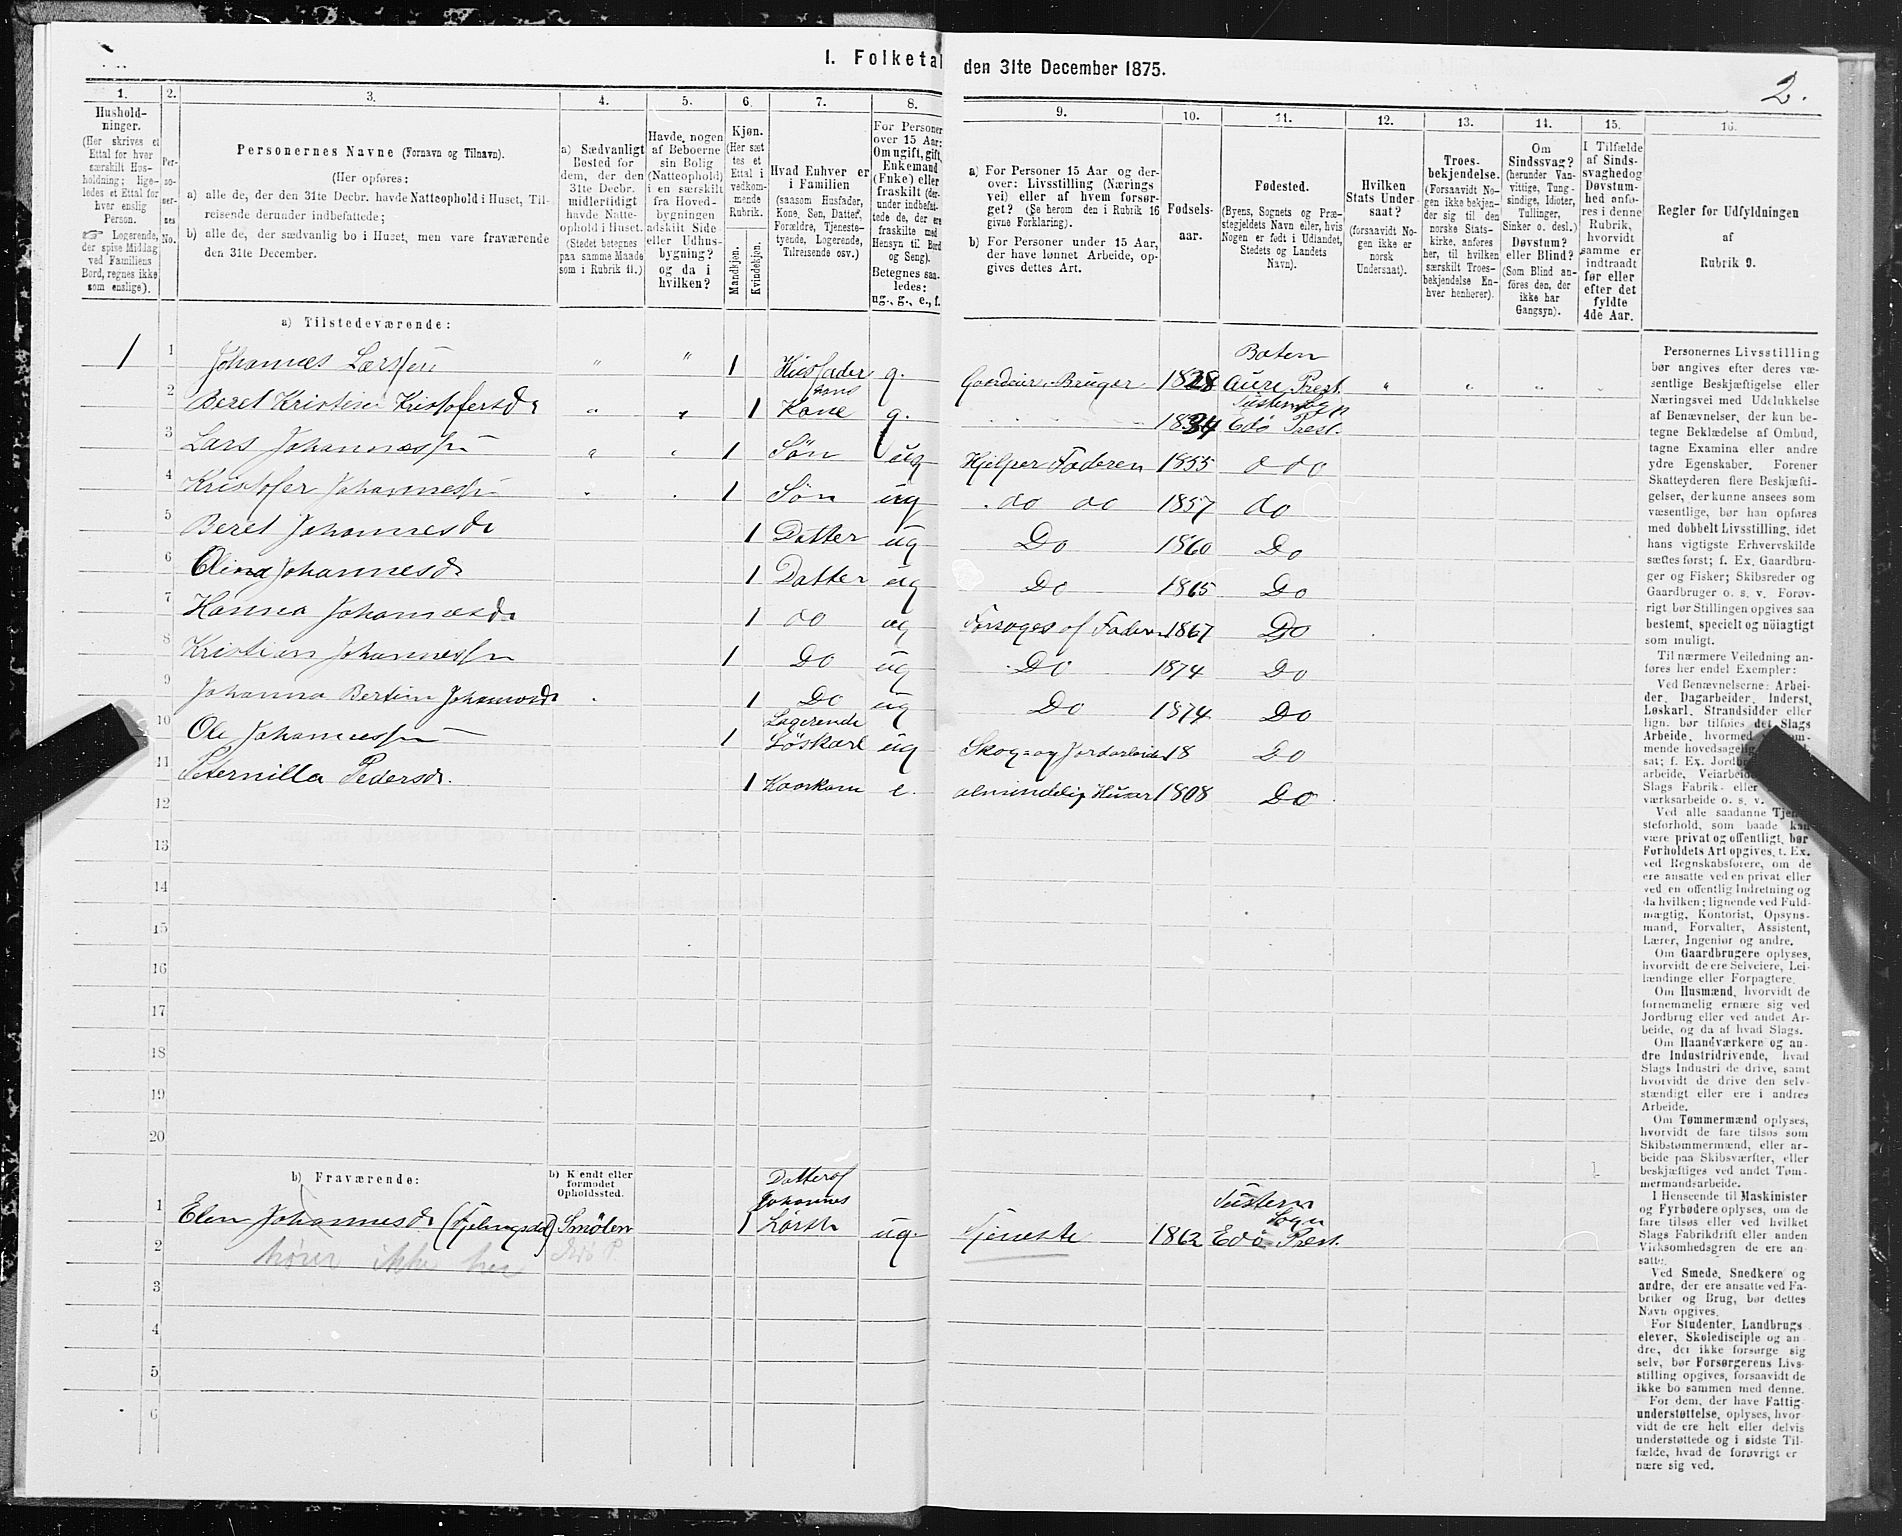 I. Folketal den 31te December 1875.
2.
1. 2. 3. 4. 5. 6. 7. 8. 9. 10. 11. 12. 13. 14. 15. 16.
Hushold-
ninger.
(Her skrives et
Ettal for hver
særskilt Hus-
holdning; lige-
ledes et Ettal for
hver enslig
Person.
☞ Logerende,
der spise Middag
ved Familiens
Bord, regnes ikke
som enslige).
Per-
so-
ner-
nes
No.
Personernes Navne (Fornavn og Tilnavn).
(Her opføres:
a) alle de, der den 31te Decbr. havde Natteophold i Huset, Til-
reisende derunder indbefattede;
b) alle de, der sædvanlig bo i Huset, men vare fraværende
den 31te December.
a) Sædvanligt
Bosted for
dem, der den
31te Decbr.
midlertidigt
havde Natte-
ophold i Huset.
(Stedet betegnes
paa samme Maade
som i Rubrik 11.)
Havde, nogen
af Beboerne
sin Bolig
(Natteophold)
i en særskilt
fra Hoved-
bygningen
adskilt Side-
eller Udhus-
bygning?
og da i
hvilken?
Kjøn.
(Her sæt-
tes et
Ettal i
vedkom-
mende
Rubrik.
Mandkjøn.
Kvindekjøn.
Hvad Enhver er
i Familien
(saasom Husfader,
Kone, Søn, Datter,
Forældre, Tjeneste-
tyende, Logerende,
Tilreisende osv.)
For Personer
over 15 Aar:
Om ugift, gift,
Enkemand
(Enke) eller
fraskilt (der-
under indbefat-
tede de, der ere
fraskilte med
Hensyn til Bord
og Seng).
Betegnes saa-
ledes:
ug., g., e., f.
a) For Personer 15 Aar og der-
over: Livsstilling (Nærings-
vei) eller af hvem forsør-
get? (Se herom den i Rubrik 16
givne Forklaring).
b) For Personer under 15 Aar,
der have lønnet Arbeide, op-
gives dettes Art.
Fødsels-
aar.
Fødested.
(Byens, Sognets og Præ-
stegjeldets Navn eller, hvis
Nogen er født i Udlandet,
Stedets og Landets
Navn).
Hvilken
Stats Under-
saat?
(forsaavidt No-
gen ikke er
norsk
Undersaat).
Troes-
bekjendelse.
(Forsaavidt No-
gen ikke bekjen-
der sig til den
norske Stats-
kirke, anføres
her, til hvilken
særskilt Troes-
bekjendelse En-
hver henhører).
Om
Sindssvag?
(herunder Van-
vittige, Tung-
sindige, Idioter,
Tullinger,
Sinker o. desl.)
Døvstum?
eller Blind?
(Som Blind an-
føres den, der
ikke har
Gangsyn).
I Tilfælde
af Sinds-
svaghed og
Døvstum-
hed anfø-
res i denne
Rubrik,
hvorvidt
samme er
indtraadt
før eller
efter det
fyldte
4de Aar.
Regler for Udfyldningen
af
Rubrik 9.
a) Tilstedeværende:
1 1 Johannes Larssen " " 1 Husfader g. Gaardeier, Bruger 1828 Aure Præst. " " " "
2 Beret Kristine Kristofersdr " " 1 hans Kone g. 1834 Edø Præst.
3 Lars Johannessen " " 1 Søn ug Hjelper Faderen 1855 do do
4 Kristofer Johannessen 1 Søn ug do do 1857 do
5 Beret Johannesdr 1 Datter ug Do 1860 Do
6 Olina Johannesdr 1 Datter ug Do 1865 Do
7 Hanna Johannesdr 1 do ug Forsøges af Faderen 1867 Do
8 Kristian Johannessen 1 Do ug Do 1874 Do
9 Johanna Bertine Johannesdr 1 Do ug Do 1874 Do
10 Ole Johannessen 1 Logerende Løskarl ug Skog- og Jordarbeider 18 Do
11 Peternilla Pedersdr. 1 e. 1808 Do
12
13
14
15
16
17
18
19
20
b) Fraværende:
b) Kjendt eller
formodet
Opholdssted.
1 Elen Johannesdr Smølen 1 Datter af Johannes Larsen ug. Tjeneste 1862 Tustern Sogn Edø Præst.
2 hører ikke her
3
4
5
6
Personernes Livsstilling
bør angives efter deres væ-
sentlige Beskjæftigelse eller
Næringsvei med Udelukkelse
af Benævnelser, der kun be-
tegne Beklædelse af Ombud,
tagne Examina eller andre
ydre Egenskaber. Forener
Skatteyderen flere Beskjæfti-
gelser, der kunne ansees som
væsentlige, bør han opføres
med dobbelt Livsstilling, idet
hans vigtigste Erhvervskilde
sættes først; f. Ex. Gaardbru-
ger og Fisker; Skibsreder og
Gaardbruger o. s. v. Forøv-
rigt bør Stillingen opgives saa
bestemt, specielt og nöiagtigt
som muligt.
Til nærmere Veiledning an-
føres her endel Exempler:
Ved Benævnelserne: Arbei-
der, Dagarbeider, Inderst,
Løskarl, Strandsidder eller
lign. bør tilføies det Slags
Arbeide, hvormed
mende hovedsagelig
sat; f. Ex.
arbeide, Veiarbeide
Slags Fabrik- eller
værksarbeide o. s. v.
Ved alle saadanne Tjene-
steforhold, som baade kan
være privat og offentligt, bør
Forholdets Art opgives, t. Ex.
ved Regnskabsførere, om de
ere ansatte ved en privat eller
ved en offentlig Indretning og
da hvilken; lignende ved Fuld-
mægtig, Kontorist, Opsyns-
mand, Forvalter, Assistent,
Lærer, Ingeniør og andre.
Om Gaardbrugere oplyses,
hvorvidt de ere Selveiere, Lei-
lændinge eller Forpagtere.
Om Husmænd, hvorvidt de
fornemmelig ernære sig ved
Jordbrug eller ved andet Ar-
beide, og da af hvad Slags.
Om Haandværkere og an-
dre Industridrivende, hvad
Slags Industri de drive, samt
hvorvidt de drive den selv-
stændigt eller ere i andres
Arbeide.
Om Tømmermænd oplyses,
hvorvidt de fare tilsøs som
Skibstømmermænd, eller ar-
beide paa Skibsværfter, eller
beskjæftiges ved andet Tøm-
mermandsarbeide.
I Henseende til Maskinister
og Fyrbødere oplyses, om de
fare tilsøs eller ved hvilket
Slags Fabrikdrift eller anden
Virksomhedsgren de ere an-
satte.
Ved Smede, Snedkere og
andre, der ere ansatte ved Fa-
briker og Brug, bør dettes
Navn opgives.
For Studenter, Landbrugs-
elever, Skoledisciple og an-
dre, der ikke forsørge sig
selv, bør Forsørgerens Livs-
stilling opgives, forsaavidt de
ikke bo sammen med denne.
For dem, der have Fattig-
understøttelse, oplyses, hvor-
vidt de ere helt eller delvis
understøttede og i sidste Til-
fælde, hvad de forøvrigt er-
nære sig ved.